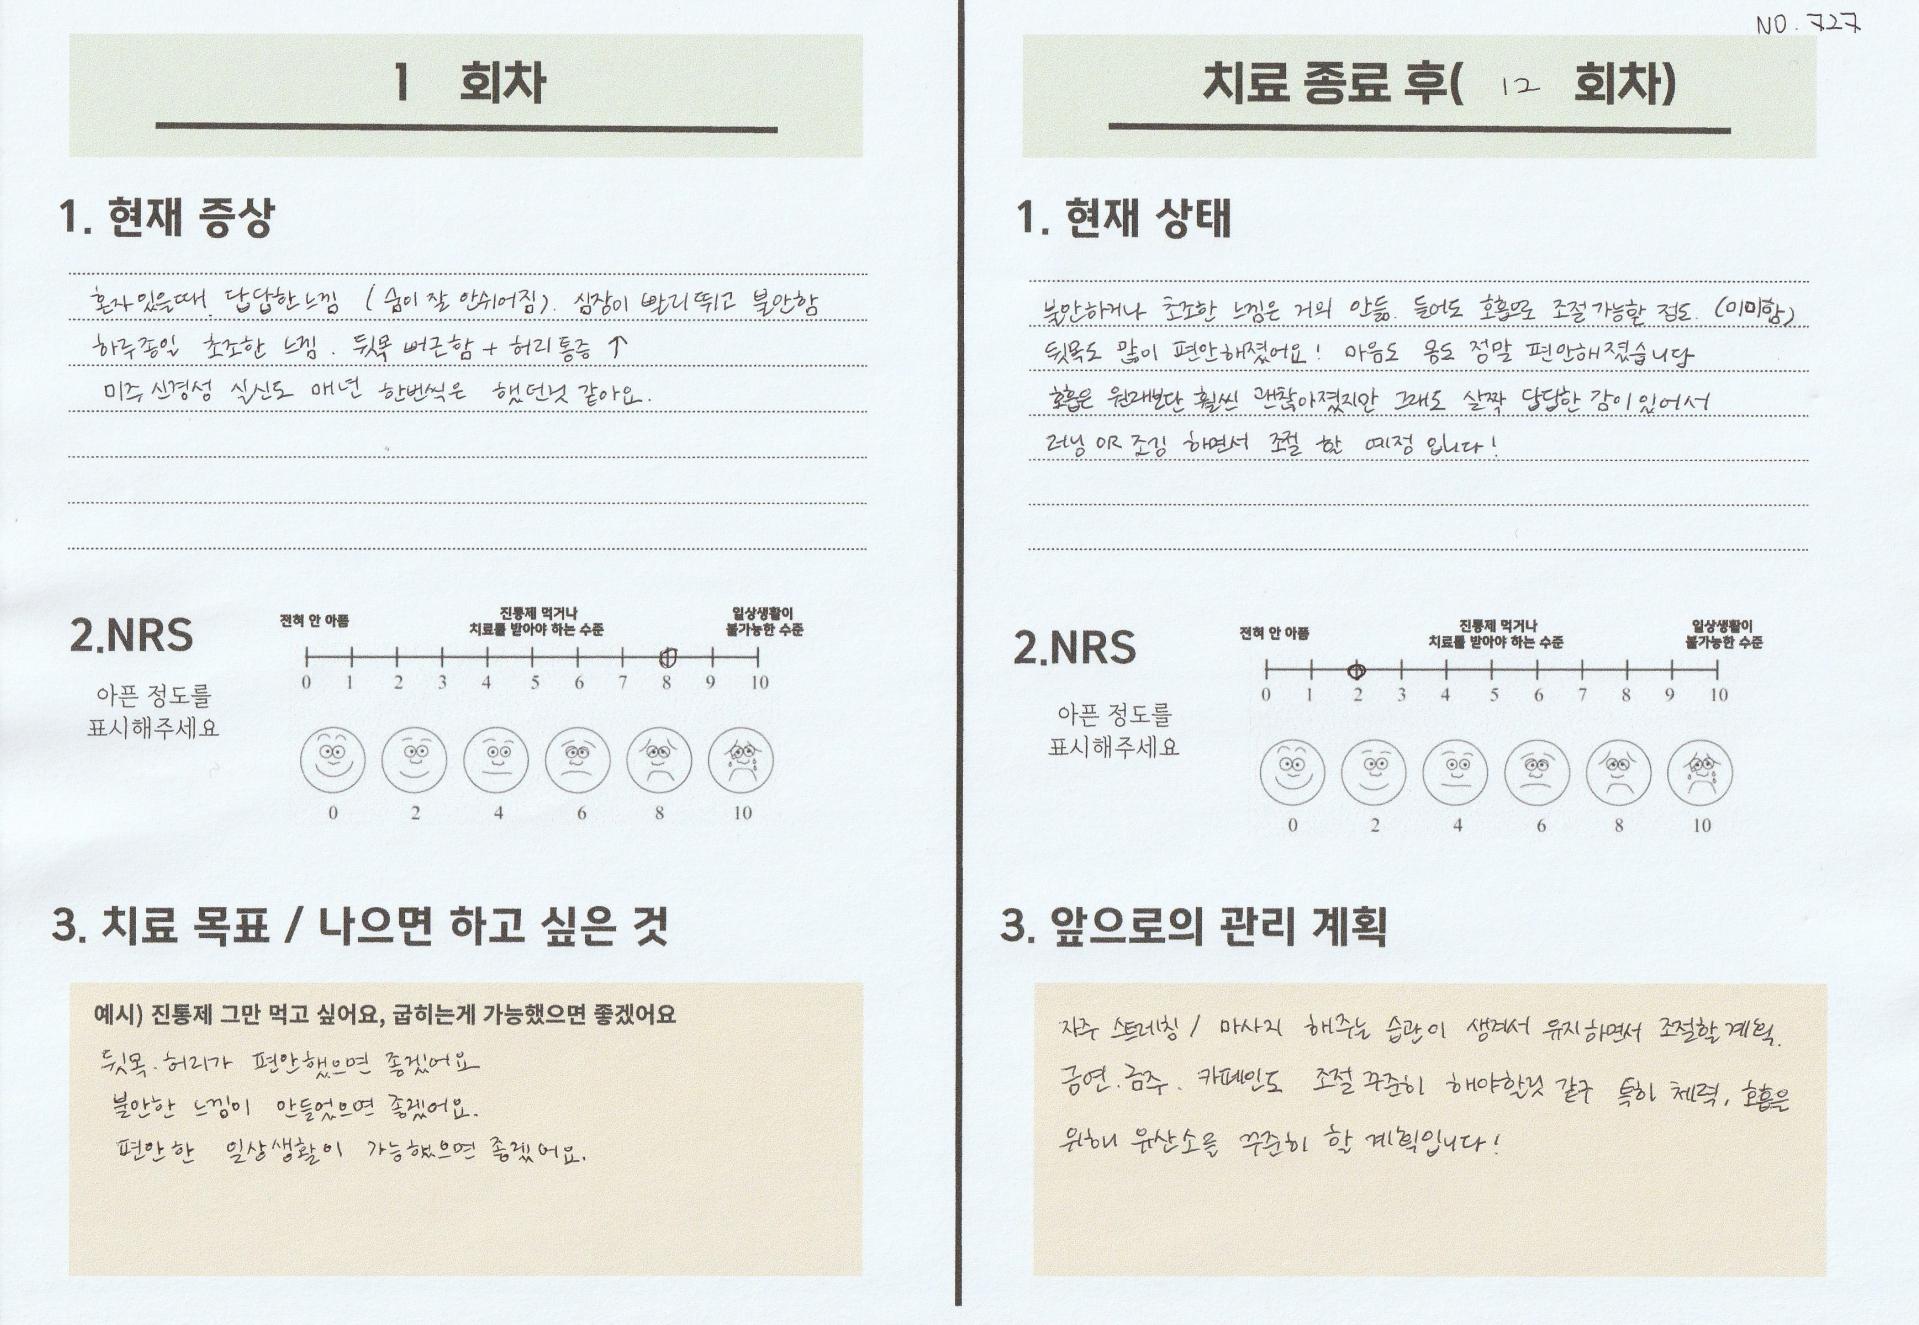 NO. 727
1 회차
1. 현재 증상
혼자있을때 답답한느낌 (숨이 잘 안쉬어짐). 심장이 빨리뛰고 불안함
하루종일 초조한 느낌. 뒷목 뻐근함 + 허리통증 ↑
미주신경성 실신도 매년 한번씩은 했던것 같아요.
2.NRS
아픈 정도를
표시해주세요
전혀 안 아픔
진통제 먹거나
치료를 받아야 하는 수준
일상생활이
불가능한 수준
0 1 2 3 4 5 6 7 8 9 10
0 2 4 6 8 10
3. 치료 목표 / 나으면 하고 싶은 것
예시) 진통제 그만 먹고 싶어요, 굽히는게 가능했으면 좋겠어요
뒷목.허리가 편안했으면 좋겠어요
불안한 느낌이 안들었으면 좋겠어요.
편안한 일상생활이 가능했으면 좋겠어요.
치료 종료 후( 12 회차)
1. 현재 상태
불안하거나 초조한 느낌은 거의 안듦. 들어도 호흡으로 조절가능할 정도. (미미함)
뒷목도 많이 편안해졌어요! 마음도 몸도 정말 편안해졌습니다
호흡은 원래보단 훨씬 괜찮아졌지만 그래도 살짝 답답한 감이있어서
러닝 OR 조깅 하면서 조절 할 예정 입니다!
2.NRS
아픈 정도를
표시해주세요
전혀 안 아픔
진통제 먹거나
치료를 받아야 하는 수준
일상생활이
불가능한 수준
0 1 2 3 4 5 6 7 8 9 10
0 2 4 6 8 10
3. 앞으로의 관리 계획
자주 스트레칭 / 마사지 해주는 습관이 생겨서 유지하면서 조절할계획.
금연.금주. 카페인도 조절 꾸준히 해야할것 같구 특히 체력, 호흡을
위해 유산소를 꾸준히 할 계획입니다!